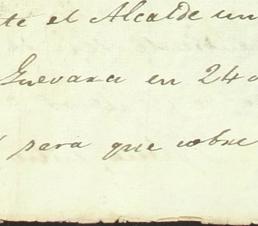 te el Alcalde un
Guevara en 24 d
para que cobre